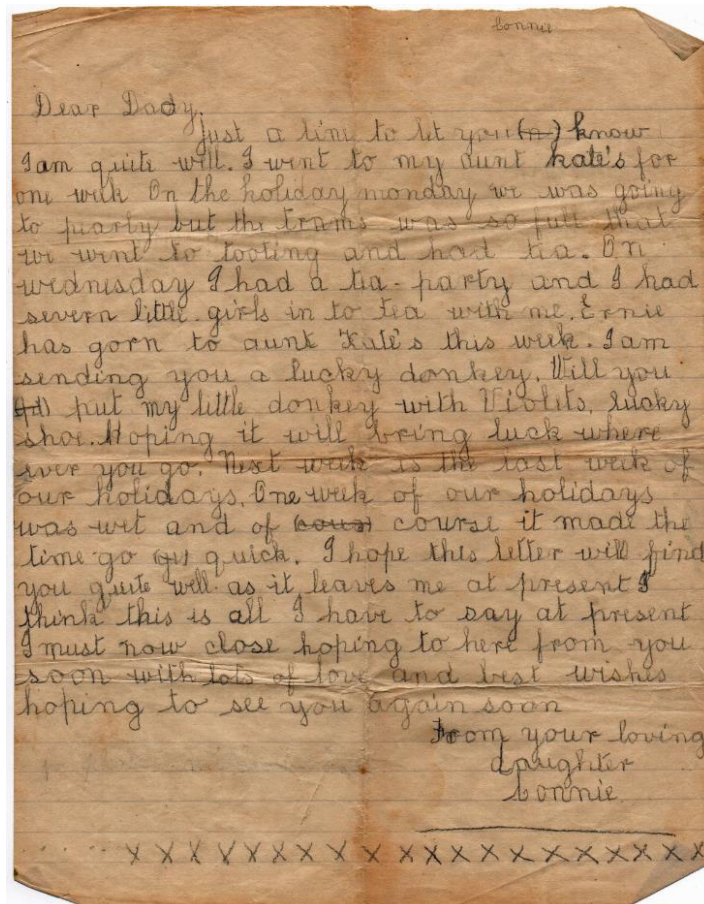 Connie
Dear Dady,
Just a line to let you (n) know
I am quite well. I went to my aunt Kate's for
one week On the holiday monday we was going
to pearly but the trams was so full that
we went to tooting and had tea. On
wednesday I had a tea-party and I had
severn little girls in to tea with me. Ernie
has gorn to aunt Kate's this week. I am
sending you a lucky donkey. Will you
put my little donkey with Violits, lucky
shoe. Hoping it will bring luck where
ever you go. Next week is the last week of
our holidays. One week of our holidays
was wet and of course it made the
time go quick. I hope this letter will find
you quite well as it leaves me at present I
think this is all I have to say at present
I must now close hoping to here from you
soon with lots of love and best wishes
hoping to see you again soon
From your loving
daughter
Connie
x x x x x x x x x x x x x x x x x x x x x